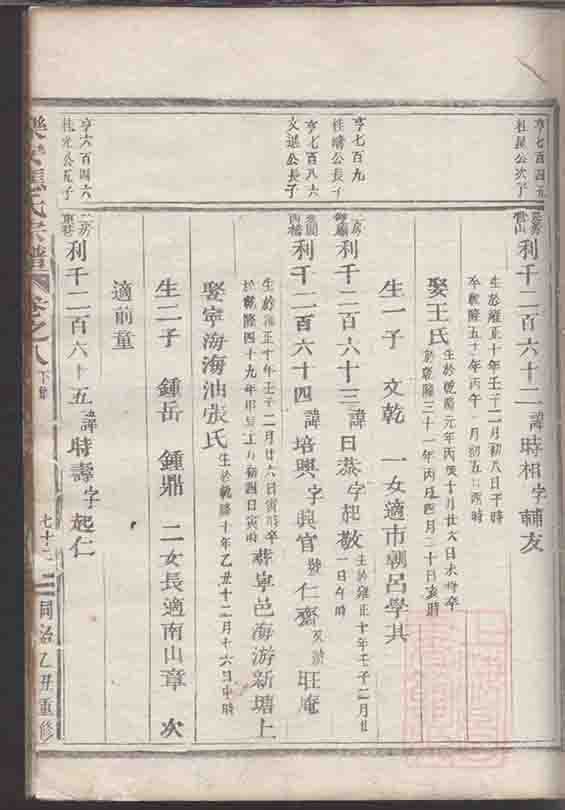 亨七百四五
公次子
利千二百六十二 諱時相 字輔友
生於雍正十年壬子二月初八日午時
卒乾隆五十年丙午 月初五日酉時
娶王氏 生於乾隆元年丙辰十月廿六日未時卒
於乾隆三十一年丙戌四月二十日亥時
生一子 文乾 一女適市朝呂學其
亨七百九
桂晴公長子
利千二百六十三 諱日恭 字起敬 生於雍正十年壬子二月廿
一日午時
亨七百八六
文進公長子
利千二百六十四 諱培興 字興官 號仁齋 又號 旺庵
生於雍正十年壬子二月廿六日寅時卒
於乾隆四十九年甲辰 初四日寅時 葬寧邑海游新塘上
娶寧海海油張氏 生於乾隆十年乙丑十二月十六日申時
生二子 鍾岳 鍾鼎 二女長適南山章 次
適前童
亨六百四六
桂元公五子
二房
東巷
利千二百六十五 諱時壽 字起仁
氏宗譜 卷之八 下 七十二 同治乙丑重修